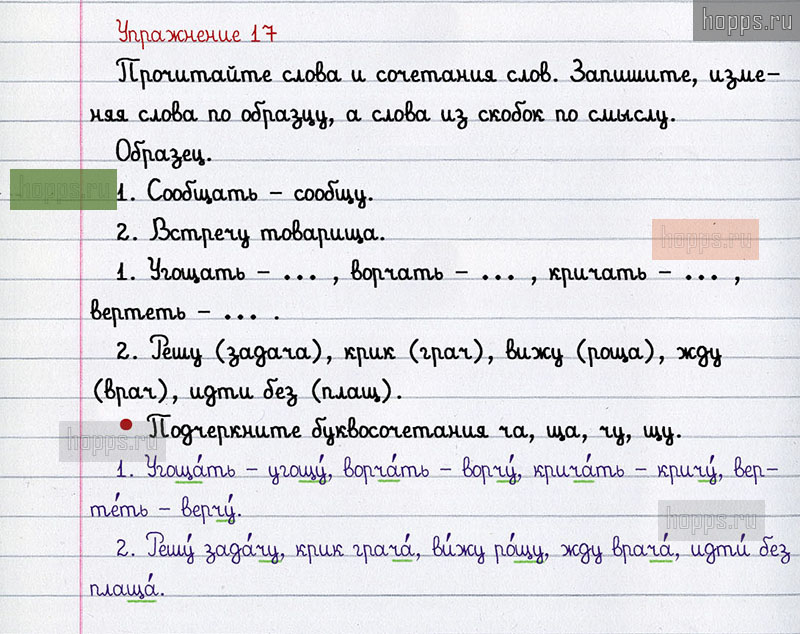 hopps.ru
Упражнение 17
Прочитайте слова и сочетания слов. Запишите, изме-
няя слова по образцу, а слова из скобок по смыслу.
Образец.
hopps.ru
1. Сообщать – сообщу.
2. Встречу товарища.
hopps.ru
1. Угощать – ... , ворчать – ... , кричать – ... ,
вертеть – ... .
2. Решу (задача), крик (грач), вижу (роща), жду
(врач), идти без (плащ).
hopps.ru
• Подчеркните буквосочетания ча, ща, чу, щу.
1. Угоща́ть – угощу́, ворча́ть – ворчу́, крича́ть – кричу́, вер-
те́ть – верчу́.
hopps.ru
2. Решу́ зада́чу, крик грача́, ви́жу ро́щу, жду врача́, идти́ без
плаща́.